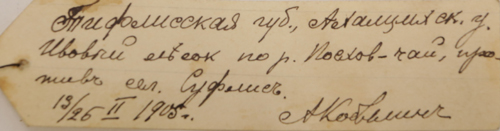 Тифлисская губ., Ахалцихск. у.
Ивовый лѣсок по р. Посхов-чай, про-
тивъ сел. Суфлисъ.
13/26 II 1905г. А Козвминъ